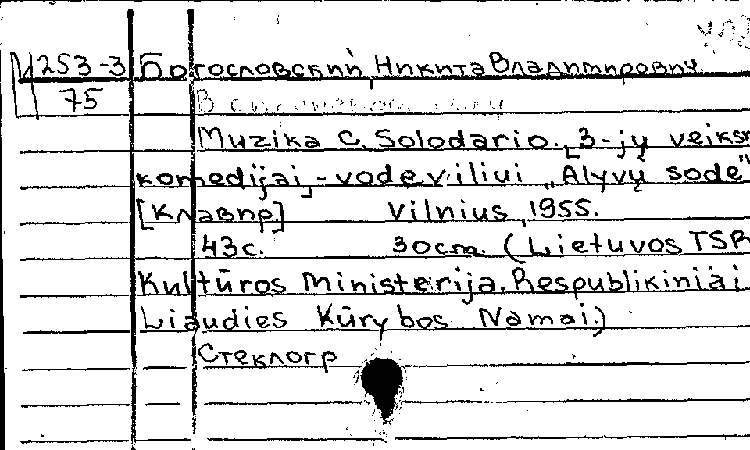 М 253-3 Богословский, Никита Владимирович
75
Muzika C. Solodario. [3-jų veiksm
komedijai]-vodeviliui „Alyvų sode"
[Клавир] Vilnius, 1955.
43с. 30cm. (Lietuvos TSR
Kultūros Ministerija. Respublikiniai
Liaudies Kūrybos Namai.)
Стеклогр